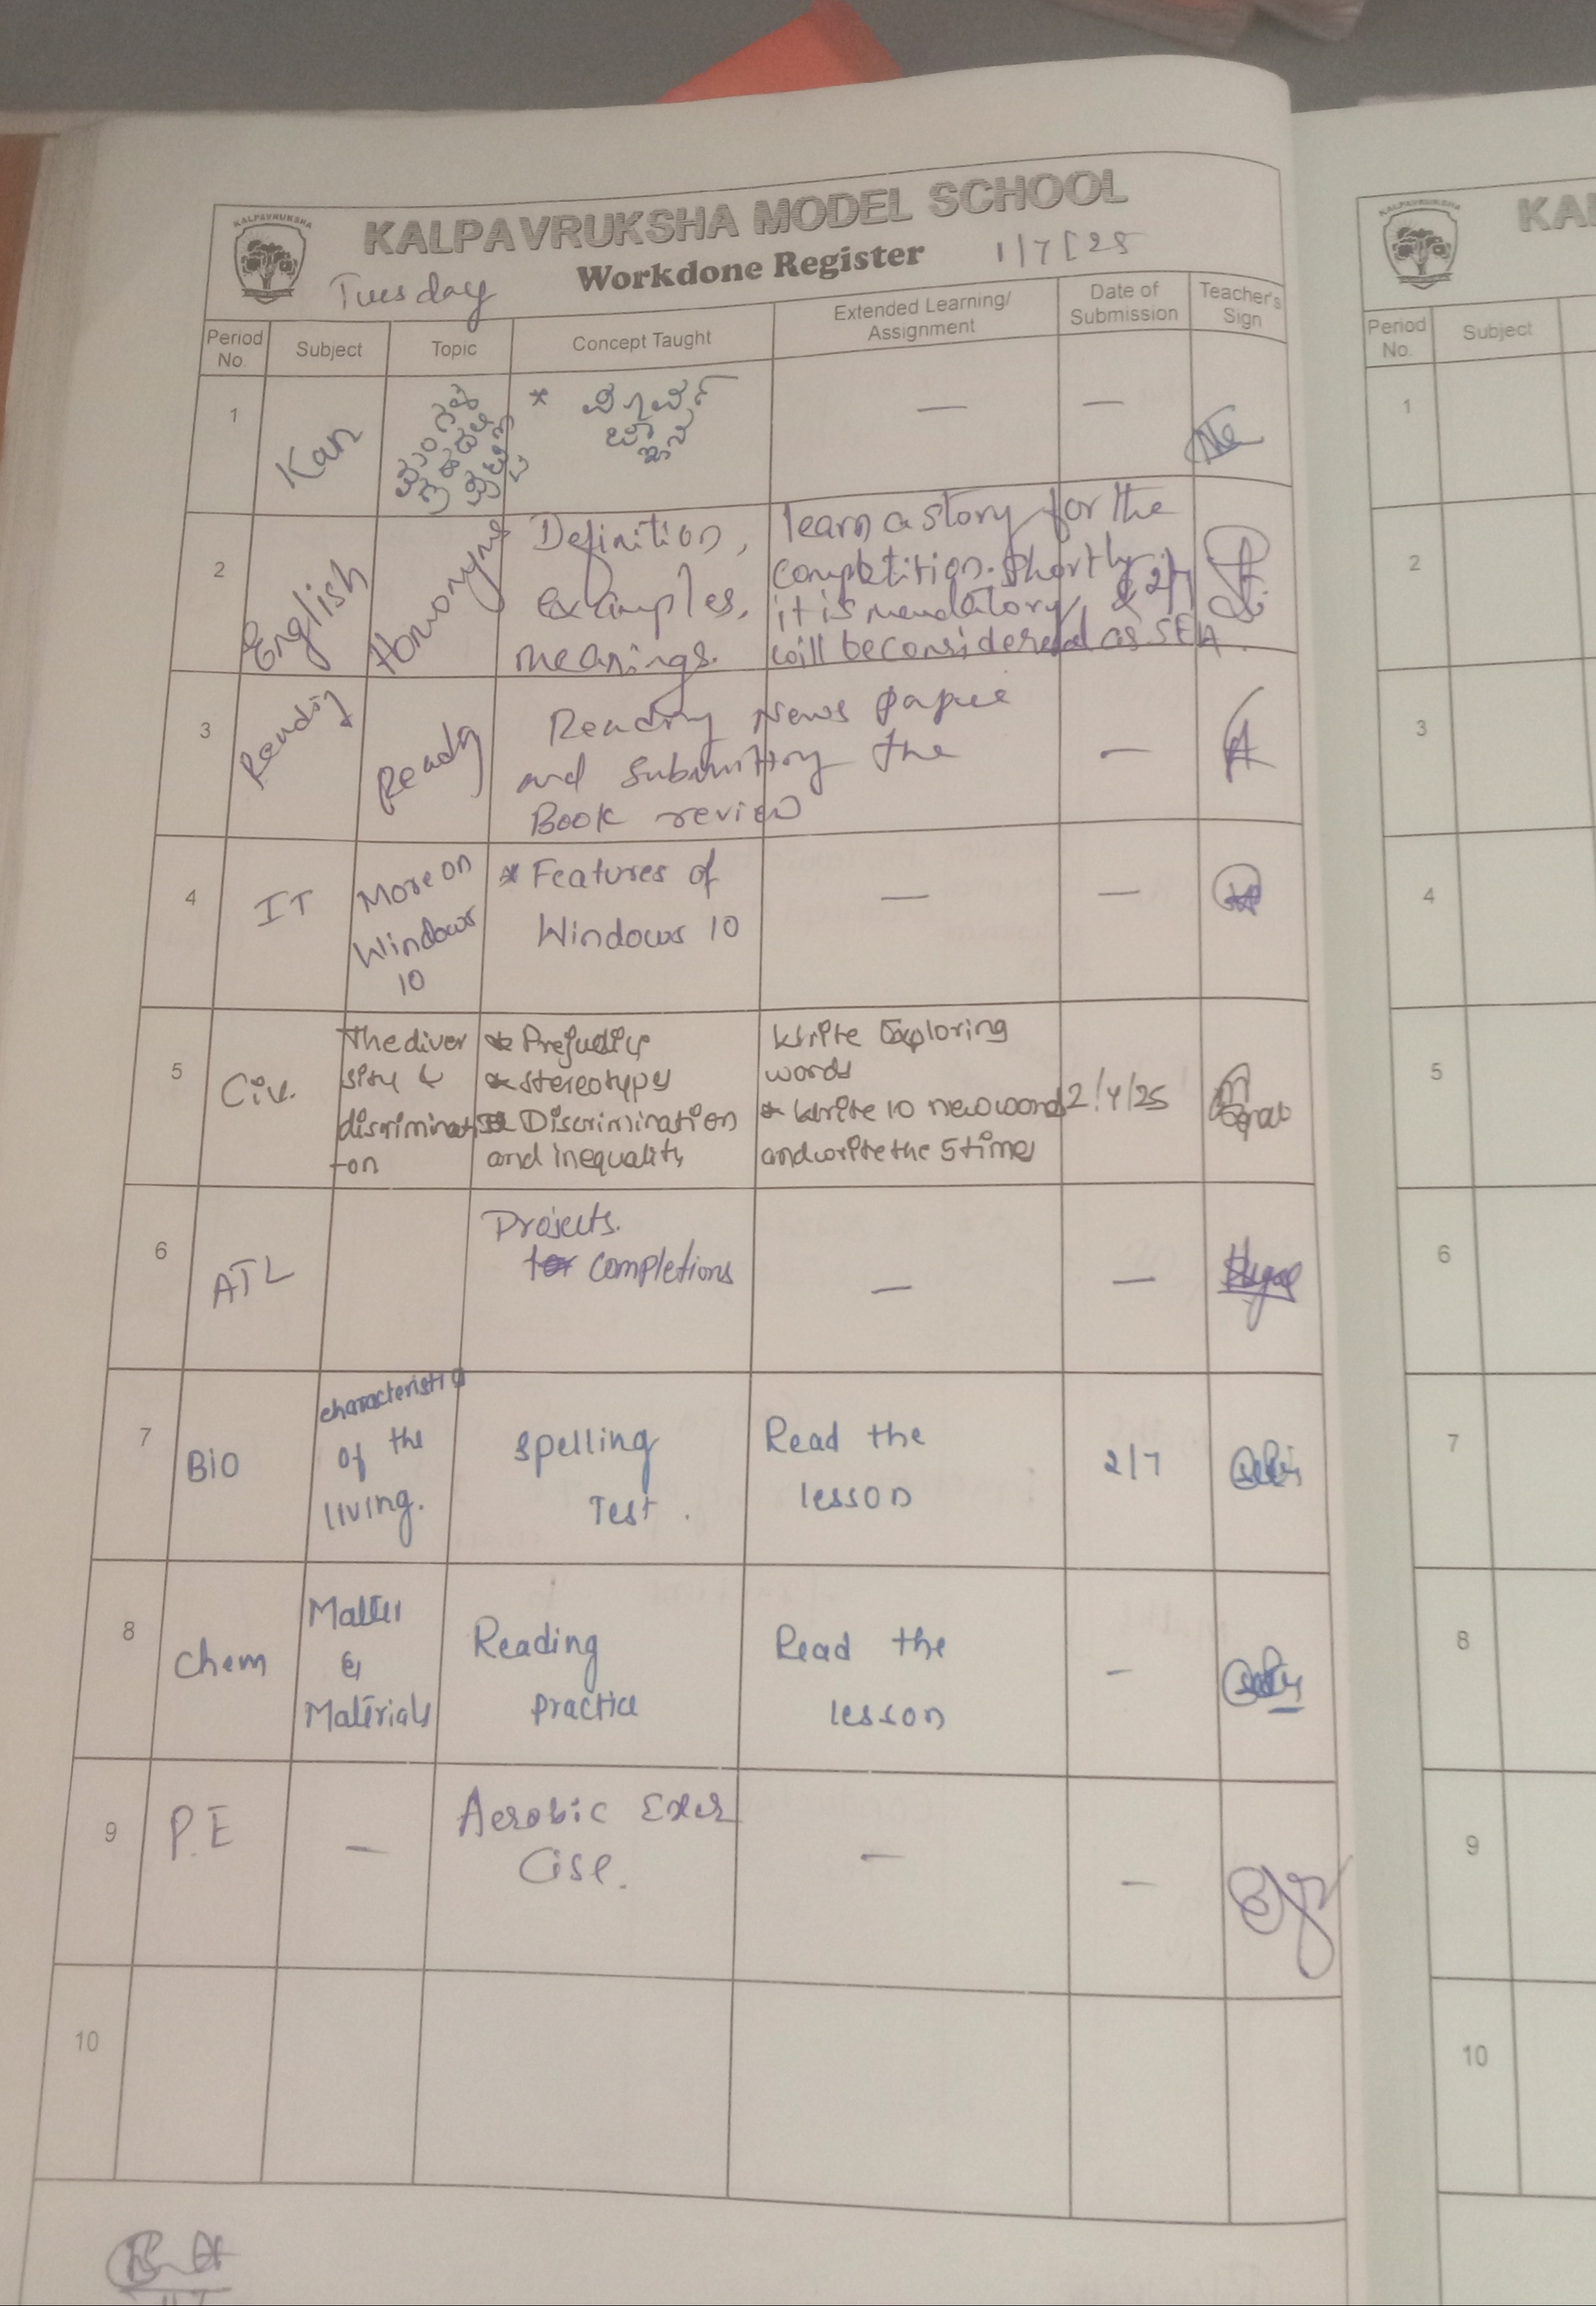 KALPAVRUKSHA
KALPAVRUKSHA MODEL SCHOOL
Workdone Register 1/7/25
Tuesday
Period No. Subject Topic Concept Taught Extended Learning/ Assignment Date of Submission Teacher's Sign
1 Kan * — —
2 English Homonyms
Definition,
examples,
meanings.
learn a story for the
competition. Shortly
it is mendatory, & 2/7
will be considered as SEA.
3 Reading Reading
Reading News paper
and submitting the
Book review
—
4 IT
More on
Windows
10
* Features of
Windows 10
— —
5 Civ.
The diver
sity &
discriminati
-on
* Prejudice
* stereotypes
* Discrimination
and inequality
Write Exploring
words
* Write 10 new word
and write the 5 times
6 ATL
Projects.
completions
— —
7 BIO
characteristic
of the
living.
Spelling
Test.
Read the
lesson
2/7
8 Chem
Matter
&
Materials
Reading
practice
Read the
lesson
-
9 P.E —
Aerobic Exer
cise.
— —
10
KALPAVRUKSHA
KAL
Period No. Subject
1
2
3
4
5
6
7
8
9
10